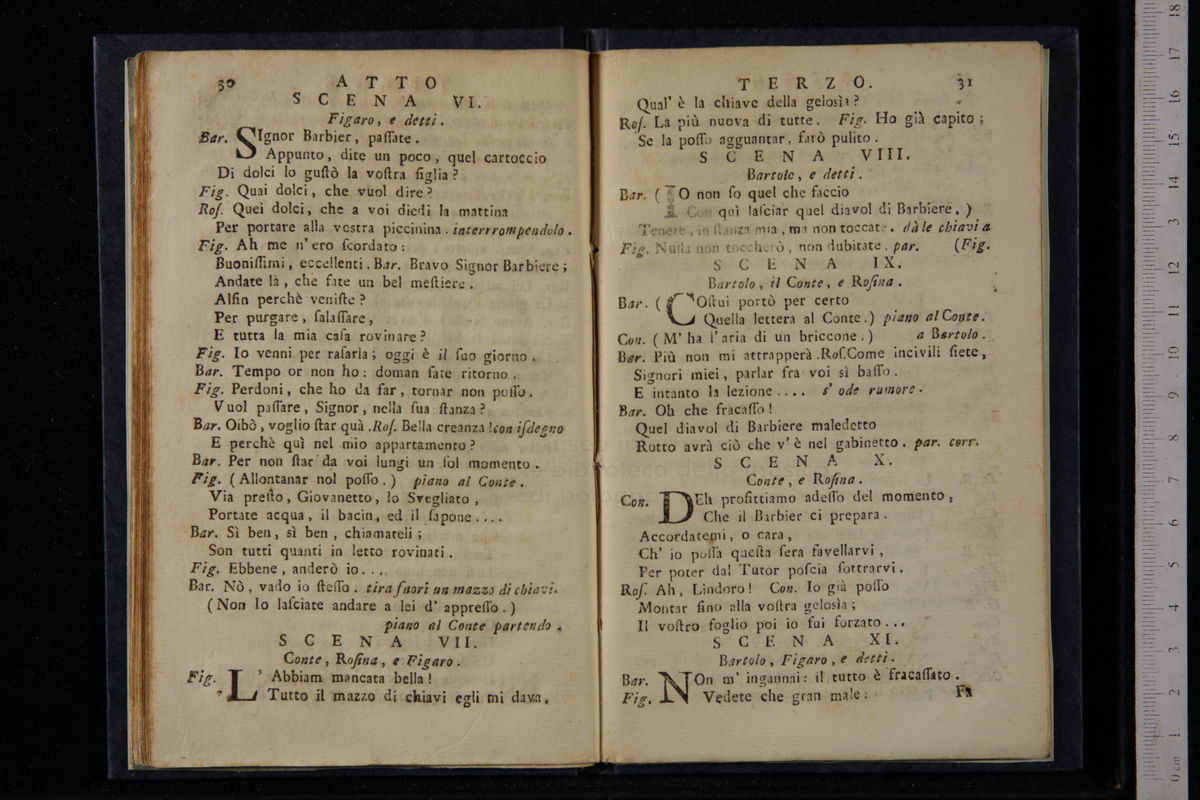 30
ATTO
SCENA VI.
Figaro, e detti.
Bar. SIgnor Barbier, paſſate.
Appunto, dite un poco, quel cartoccio
Di dolci lo guſtò la voſtra figlia?
Fig. Quai dolci, che vuol dire?
Roſ. Quei dolci, che a voi diedi la mattina
Per portare alla vostra piccinina. interrrompendolo.
Fig. Ah me n'ero ſcordato:
Buoniſſimi, eccellenti. Bar. Bravo Signor Barbiere;
Andate là, che fate un bel meſtiere.
Alfin perchè veniſte?
Per purgare, ſalaſſare,
E tutta la mia caſa rovinare?
Fig. Io venni per raſarla; oggi è il ſuo giorno.
Bar. Tempo or non ho: doman fate ritorno.
Fig. Perdoni, che ho da far, tornar non poſſo.
Vuol paſſare, Signor, nella ſua ſtanza?
Bar. Oibò, voglio ſtar quà. Roſ. Bella creanza! con iſdegno
E perchè quì nel mio appartamento?
Bar. Per non ſtar da voi lungi un ſol momento.
Fig. (Allontanar nol poſſo.) piano al Conte.
Via preſto, Giovanetto, lo Svegliato,
Portate acqua, il bacin, ed il ſapone....
Bar. Sì ben, sì ben, chiamateli;
Son tutti quanti in letto rovinati.
Fig. Ebbene, anderò io...
Bar. Nò, vado io ſteſſo. tira fuori un mazzo di chiavi.
(Non lo laſciate andare a lei d'appreſſo.)
piano al Conte partendo.
SCENA VII.
Conte, Roſina, e Figaro.
Fig. L'Abbiam mancata bella!
Tutto il mazzo di chiavi egli mi dava.
TERZO.
31
Qual' è la chiave della gelosìa?
Roſ. La più nuova di tutte. Fig. Ho già capito;
Se la poſſo agguantar, farò pulito.
SCENA VIII.
Bartolo, e detti.
Bar. (IO non ſo quel che faccio
Con quì laſciar quel diavol di Barbiere.)
Tenete, in ſtanza mia, ma non toccate. dà le chiavi a
Fig. Nulla non toccherò, non dubitate. par. (Fig.
SCENA IX.
Bartolo, il Conte, e Roſina.
Bar. (COſtui portò per certo
Quella lettera al Conte.) piano al Conte.
Con. (M'ha l'aria di un briccone.) a Bartolo.
Bar. Più non mi attrapperà. Roſ. Come incivili ſiete,
Signori miei, parlar fra voi sì baſſo.
E intanto la lezione.... s'ode rumore.
Bar. Oh che fracaſſo!
Quel diavol di Barbiere maledetto
Rotto avrà ciò che v'è nel gabinetto. par. corr.
SCENA X.
Conte, e Roſina.
Con. DEh profittiamo adeſſo del momento,
Che il Barbier ci prepara.
Accordatemi, o cara,
Ch'io poſſa queſta ſera favellarvi,
Per poter dal Tutor poſcia ſottrarvi.
Roſ. Ah, Lindoro! Con. Io già poſſo
Montar fino alla voſtra gelosìa;
Il voſtro foglio poi io fui forzato...
SCENA XI.
Bartolo, Figaro, e detti.
Bar. NOn m'ingannai: il tutto è fracaſſato.
Fig. Vedete che gran male: